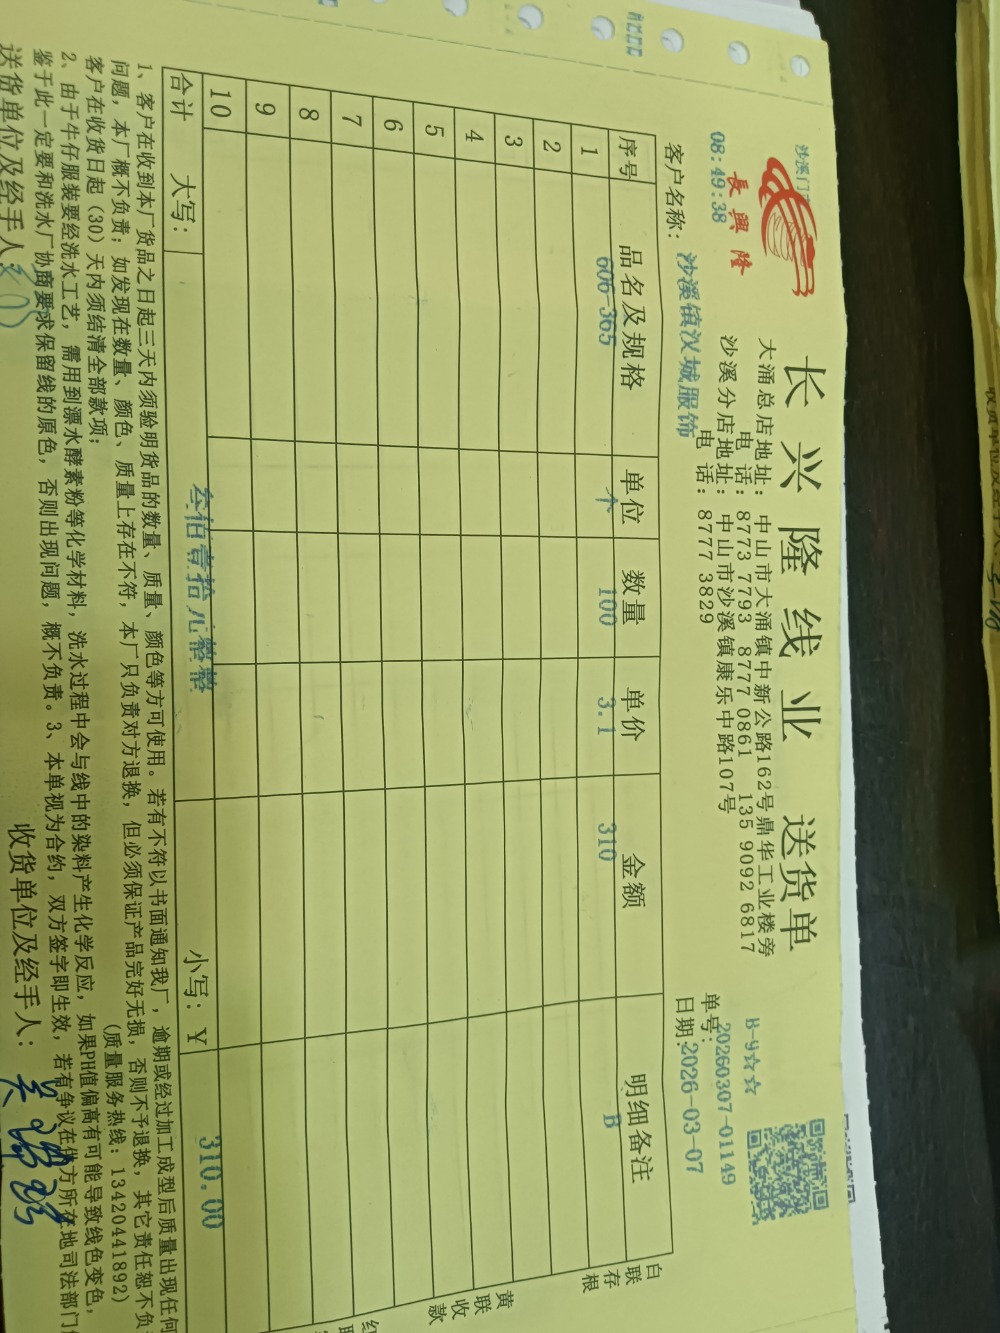 長興隆
沙溪门
08:49:38
长兴隆线业 送货单
大涌总店地址: 中山市大涌镇中新公路162号鼎华工业楼旁
电 话: 8773 7793 8777 0861 135 9092 6817
沙溪分店地址: 中山市沙溪镇康乐中路107号
电 话: 8777 3829
B-9☆☆
单号: 20260307-01149
客户名称: 沙溪镇汉城服饰
日期: 2026-03-07
序号 品名及规格 单位 数量 单价 金额 明细备注
1 606-365 个 100 3.1 310 B
2
3
4
5
6
7
8
9
10
合计 大写: 叁佰壹拾元整整 小写: ¥ 310.00
白联存根
黄联收款
红
1、客户在收到本厂货品之日起三天内须验明货品的数量、质量、颜色等方可使用。若有不符以书面通知我厂,逾期或经过加工成型后质量出现任何
问题,本厂概不负责;如发现在数量、颜色、质量上存在不符,本厂只负责对方退换,但必须保证产品完好无损,否则不予退换,其它责任恕不负
客户在收货日起(30)天内须结清全部款项; (质量服务热线: 13420441892)
2、由于牛仔服装要经洗水工艺,需用到漂水酵素粉等化学材料,洗水过程中会与线中的染料产生化学反应,如果PH值偏高有可能导致线色变色,
鉴于此一定要和洗水厂协商要求保留线的原色,否则出现问题,概不负责。3、本单视为合约,双方签字即生效,若有争议在供方所在地司法部门
送货单位及经手人:
收货单位及经手人: